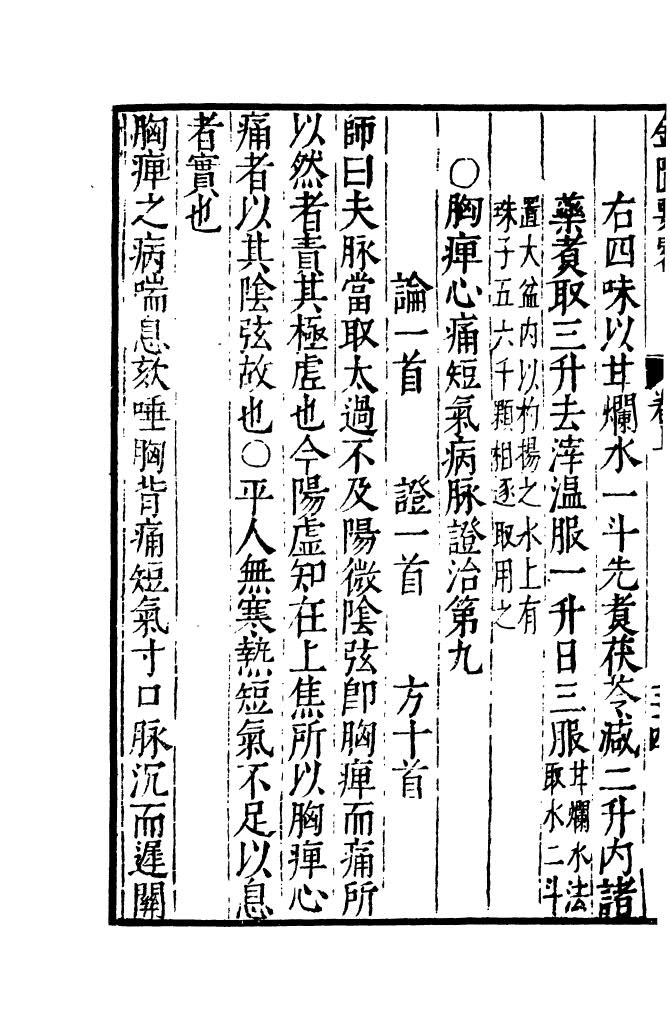 金匱要略 卷上
右四味以甘爛水一斗先煑茯苓減二升内諸
藥煑取三升去滓温服一升日三服甘爛水法
取水二斗
置大盆内以杓揚之水上有
珠子五六千顆相逐取用之
○胸痺心痛短氣病脉證治第九
論一首 證一首 方十首
師曰夫脉當取太過不及陽微陰弦即胸痺而痛所
以然者責其極虛也今陽虛知在上焦所以胸痺心
痛者以其陰弦故也○平人無寒熱短氣不足以息
者實也
胸痺之病喘息欬唾胸背痛短氣寸口脉沉而遲關